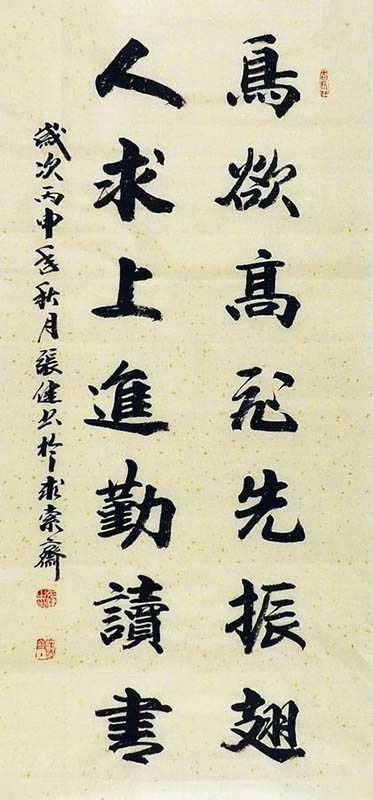 鳥欲高飛先振翅
人求上進勤讀書
歲次丙申季秋月張健書於求索齋